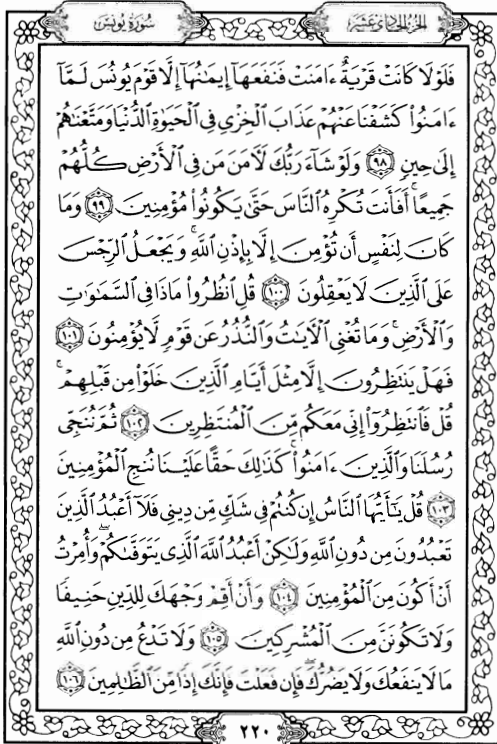 سُورَةُ يُونُسَ
الجُزْءُ الحَادِي عَشَرَ
فَلَوْلَا كَانَتْ قَرْيَةٌ ءَامَنَتْ فَنَفَعَهَآ إِيمَٰنُهَآ إِلَّا قَوْمَ يُونُسَ لَمَّآ
ءَامَنُوا۟ كَشَفْنَا عَنْهُمْ عَذَابَ ٱلْخِزْىِ فِى ٱلْحَيَوٰةِ ٱلدُّنْيَا وَمَتَّعْنَٰهُمْ
إِلَىٰ حِينٍ ٩٨ وَلَوْ شَآءَ رَبُّكَ لَـَٔامَنَ مَن فِى ٱلْأَرْضِ كُلُّهُمْ
جَمِيعًا ۚ أَفَأَنتَ تُكْرِهُ ٱلنَّاسَ حَتَّىٰ يَكُونُوا۟ مُؤْمِنِينَ ٩٩ وَمَا
كَانَ لِنَفْسٍ أَن تُؤْمِنَ إِلَّا بِإِذْنِ ٱللَّهِ ۚ وَيَجْعَلُ ٱلرِّجْسَ
عَلَى ٱلَّذِينَ لَا يَعْقِلُونَ ١٠٠ قُلِ ٱنظُرُوا۟ مَاذَا فِى ٱلسَّمَٰوَٰتِ
وَٱلْأَرْضِ ۚ وَمَا تُغْنِى ٱلْـَٔايَٰتُ وَٱلنُّذُرُ عَن قَوْمٍ لَّا يُؤْمِنُونَ ١٠١
فَهَلْ يَنتَظِرُونَ إِلَّا مِثْلَ أَيَّامِ ٱلَّذِينَ خَلَوْا۟ مِن قَبْلِهِمْ ۚ
قُلْ فَٱنتَظِرُوٓا۟ إِنِّى مَعَكُم مِّنَ ٱلْمُنتَظِرِينَ ١٠٢ ثُمَّ نُنَجِّى
رُسُلَنَا وَٱلَّذِينَ ءَامَنُوا۟ ۚ كَذَٰلِكَ حَقًّا عَلَيْنَا نُنجِ ٱلْمُؤْمِنِينَ
١٠٣ قُلْ يَٰٓأَيُّهَا ٱلنَّاسُ إِن كُنتُمْ فِى شَكٍّ مِّن دِينِى فَلَآ أَعْبُدُ ٱلَّذِينَ
تَعْبُدُونَ مِن دُونِ ٱللَّهِ وَلَٰكِنْ أَعْبُدُ ٱللَّهَ ٱلَّذِى يَتَوَفَّىٰكُمْ ۖ وَأُمِرْتُ
أَنْ أَكُونَ مِنَ ٱلْمُؤْمِنِينَ ١٠٤ وَأَنْ أَقِمْ وَجْهَكَ لِلدِّينِ حَنِيفًا
وَلَا تَكُونَنَّ مِنَ ٱلْمُشْرِكِينَ ١٠٥ وَلَا تَدْعُ مِن دُونِ ٱللَّهِ
مَا لَا يَنفَعُكَ وَلَا يَضُرُّكَ ۖ فَإِن فَعَلْتَ فَإِنَّكَ إِذًا مِّنَ ٱلظَّٰلِمِينَ ١٠٦
٢٢٠